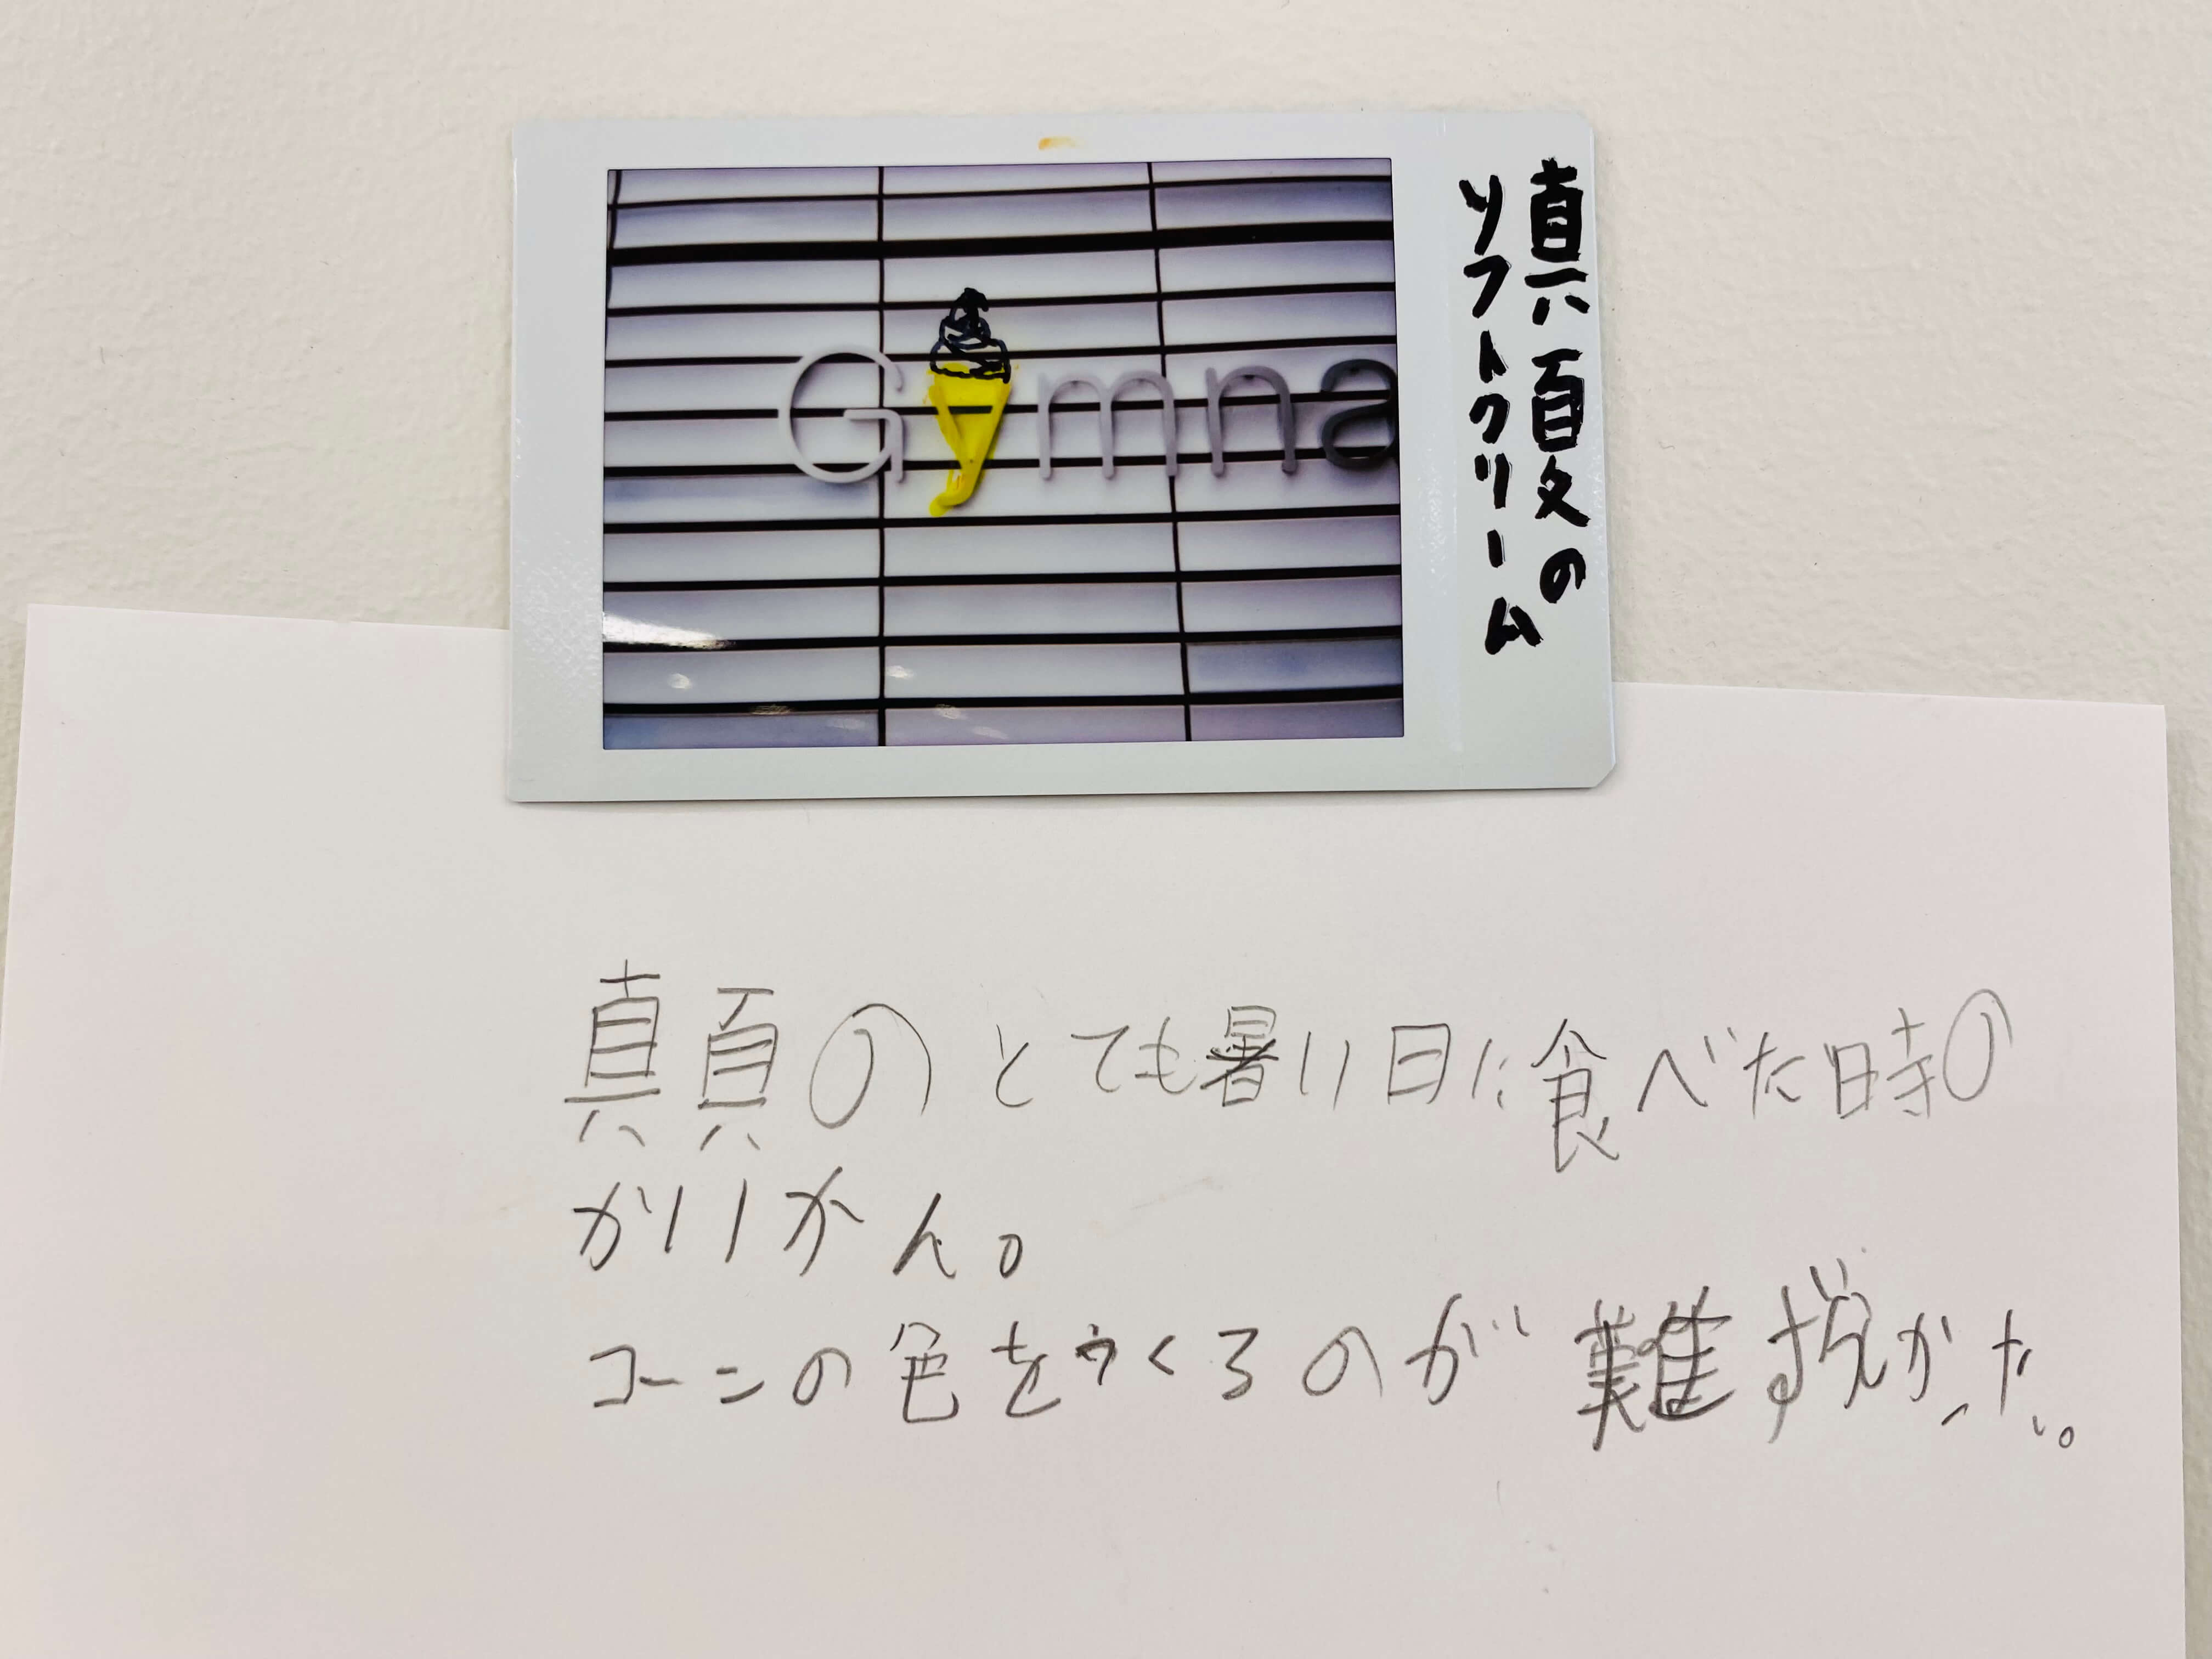 Gymna
真夏の
ソフトクリーム
真夏のとても暑い日に食べた時の
かいかん。
コーンの色をつくるのが難かった。